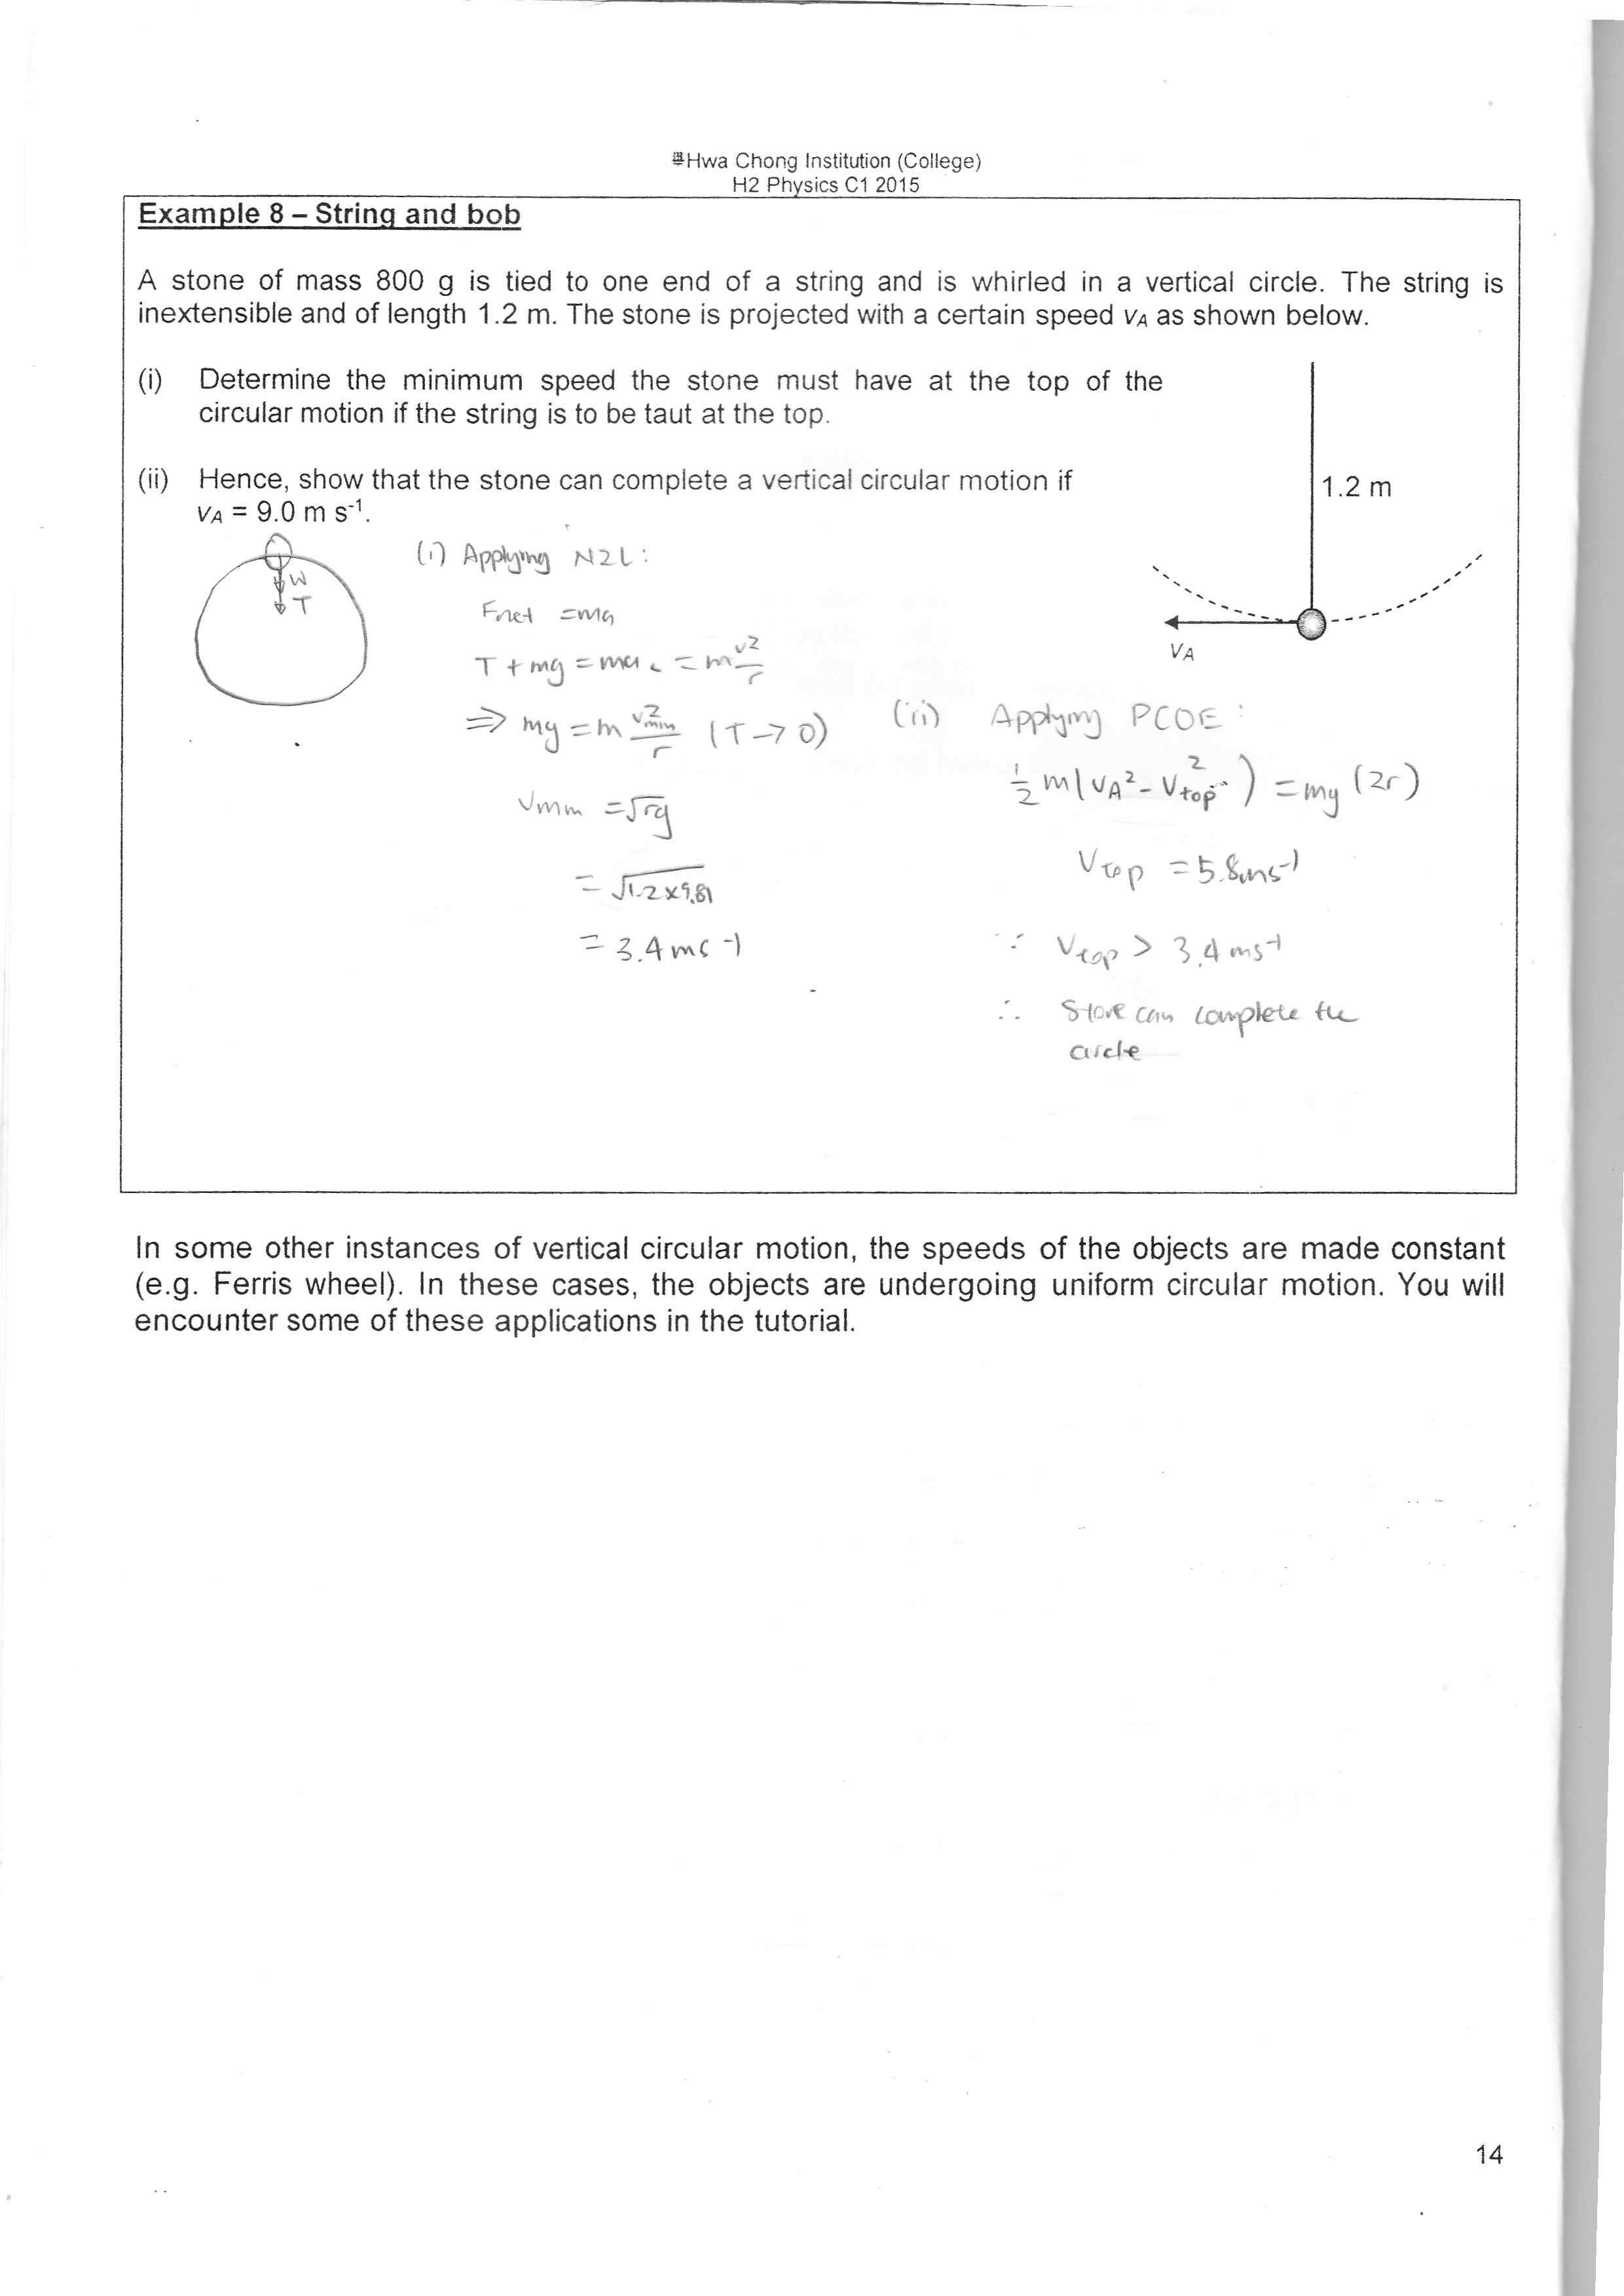 Hwa Chong Institution (College)
H2 Physics C1 2015
Example 8 – String and bob
A stone of mass 800 g is tied to one end of a string and is whirled in a vertical circle. The string is
inextensible and of length 1.2 m. The stone is projected with a certain speed vA as shown below.
(i) Determine the minimum speed the stone must have at the top of the
circular motion if the string is to be taut at the top.
(ii) Hence, show that the stone can complete a vertical circular motion if
vA = 9.0 m s-1.
1.2 m
vA
W
T
(i) Applying N2L :
Fnet = ma
T + mg = mac = m v²/r
⇒ mg = m v²min/r (T → 0)
vmin = √rg
= √1.2 x 9.81
= 3.4 ms-1
(ii) Applying PCOE :
½ m(vA² - vtop²) = mg (2r)
Vtop = 5.8ms-1
∵ Vtop > 3.4 ms-1
∴ Stone can complete the
circle
In some other instances of vertical circular motion, the speeds of the objects are made constant
(e.g. Ferris wheel). In these cases, the objects are undergoing uniform circular motion. You will
encounter some of these applications in the tutorial.
14